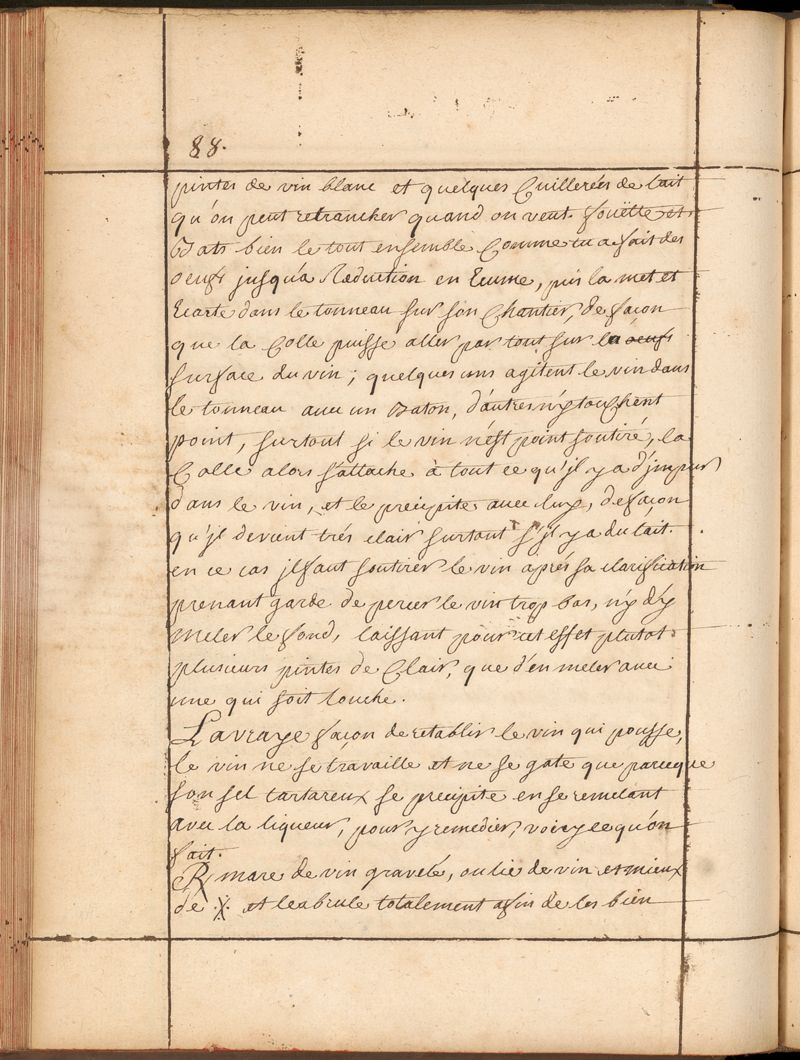 88.
pintes de vin blanc et quelques Cuillerées de lait
qu'on peut retrancher quand on veut. fouëtte et
Bats bien le tout ensemble Comme tu a fait des
oeufs jusqu'a Reduction en Ecume, puis la met et
Ecarte dans le tonneau sur son Chantier, de façon
que la Colle puisse aller par tout sur la oeufs
surface du vin; quelques uns agitent le vin dans
le tonneau avec un Baton, d'autres n'y touchent
point, surtout si le vin n'est point soutiré, la
Colle alors s'attache à tout ce qu'jl y a d'jmpur
dans le vin, et le precipite avec luy, de façon
qu'jl devient trés clair surtout s'jl y a du lait.
en ce cas jl faut soutirer le vin aprés sa clarification
prenant garde de percer le vin trop bas, n'y d'y
meler le fond, laissant pour cet effet plutot
plusieurs pintes de Clair, que d'en meler avec
une qui soit louche.
La vraye façon de retablir le vin qui pousse,
le vin ne se travaille et ne se gate que parceque
son sel tartareux se precipite en se remelant
avec la liqueur, pour y remedier, voicy ce qu'on
fait.
℞ marc de vin gravelé, ou lie de vin et mieux
de et les brule totalement afin de les bien